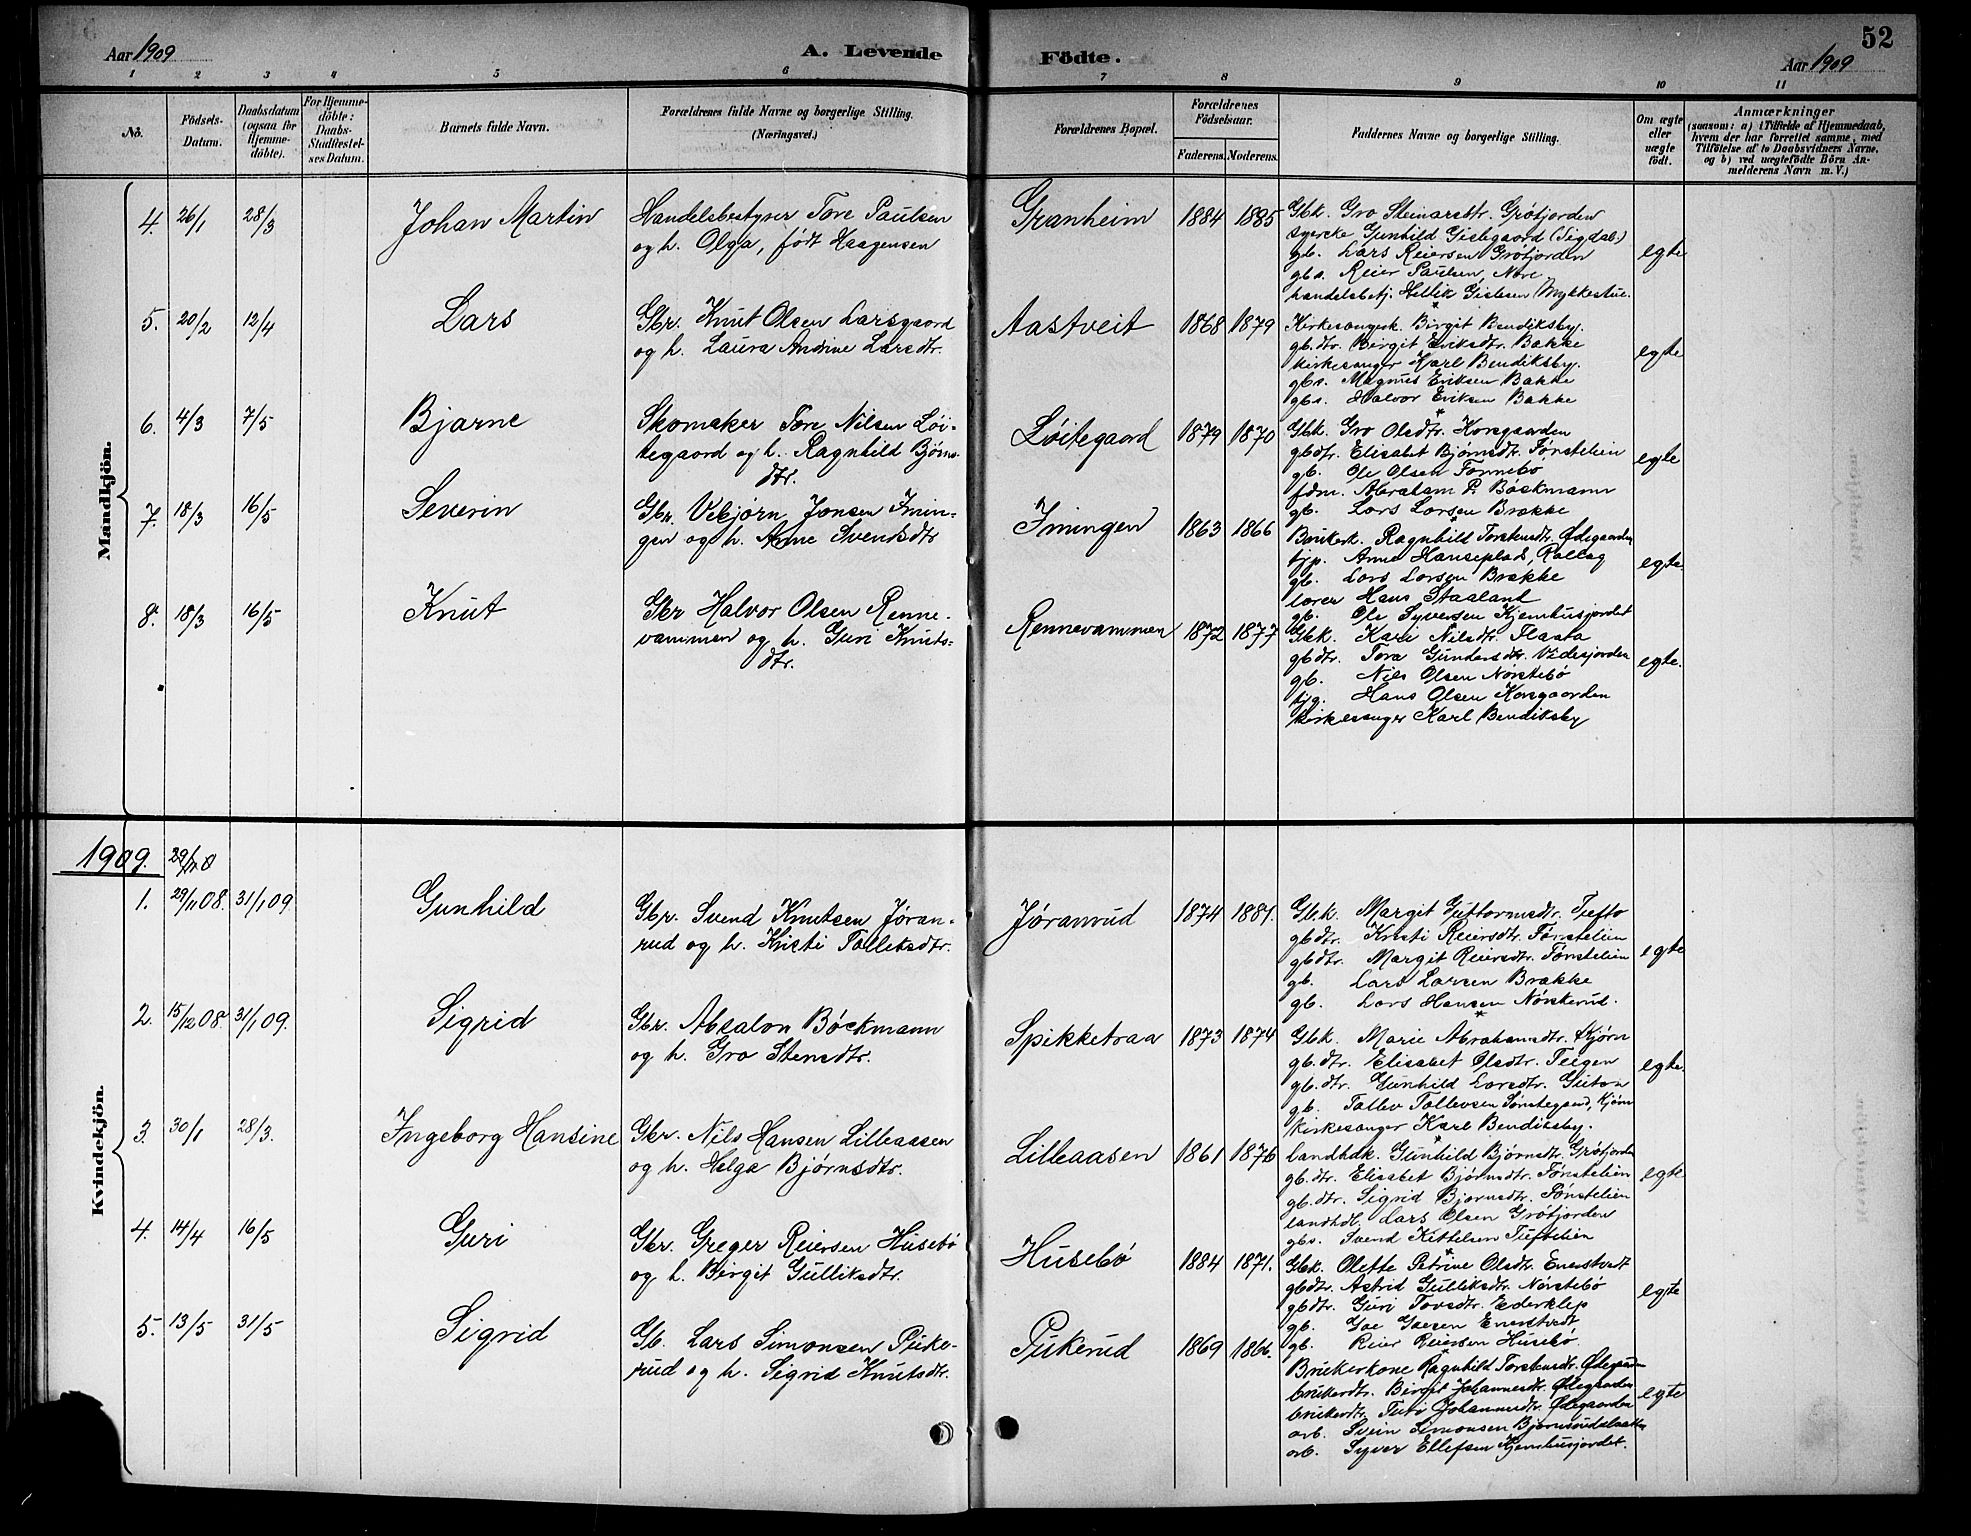 52
Aar 1909
A. Levende Födte.
Aar 1909
1 2 3 4 5 6 7 8 9 10 11
No.
Födsels-
Datum.
Daabsdatum
(ogsaa for
Hjemme-
döbte).
For Hjemme-
döbte:
Daabs-
Stadfæstel-
ses Datum.
Barnets fulde Navn.
Forældrenes fulde Navne og borgerlige Stilling.
(Næringsvei.)
Forældrenes Bopæl.
Forældrenes
Födselsaar.
Faderens. Moderens.
Faddernes Navne og borgerlige Stilling.
Om ægte
eller
uægte
födt.
Anmærkninger
(saasom: a) i Tilfælde af Hjemmedaab,
hvem der har forrettet samme, med
Tilföielse af to Daabsvidners Navne,
og b) ved uægtefödte Börn An-
melderens Navn m. V.)
Mandkjön.
4. 26/1 28/3 Johan Martin
Handelsbestyrer Tore Paulsen
og h. Olga, født Haagensen
Granheim 1884 1885
Gbk. Gro Steinarsdtr. Grøtjorden
syerske Gunhild Gislegaard (Sigdal)
gb. Lars Reiersen Grøtjorden
gbs. Reier Paulsen, Nore
handelsbetj. Hellik Gislesen Mykkestue.
egte
5. 20/2 12/4 Lars
Gbr. Knut Olsen Larsgaard
og h. Laura Andrine Larsdtr.
Aastveit 1868 1879
Kirkesangerk. Birgit Bendiksby.
gb.dtr. Birgit Eriksdtr. Bakke
kirkesanger Karl Bendiksby.
gbs. Magnus Eriksen Bakke
gbs. Halvor Eriksen Bakke
egte
6. 4/3 7/5 Bjarne
Skomaker Tore Nilsen Løi-
tegaard og h. Ragnhild Bjørns-
dtr.
Løitegaard 1879 1870
Gbk. Gro Olsdtr. Korsgaarden
gbdtr. Elisabet Bjørnsdtr. Tønstelien
gb. Ole Olsen Tonnebo
fdm. Abraham P. Böckmann
gb. Lars Larsen Brække
egte
7. 18/3 16/5 Severin
Gbr. Vebjørn Jonsen Imin-
gen og h. Anne Svendsdtr
Imingen 1863 1866
Brukerk. Ragnhild Torstensdtr. Ødegaarden
tjp. Anne Hanseplads, Rollag
gb. Lars Larsen Brække
lærer Hans Staaland
gb. Ole Syversen Kjemhusjordet
egte.
8. 18/3 16/5 Knut
Gbr Halvor Olsen Renne-
vammen og h. Guri Knuts-
dtr.
Rennevammen 1872 1877
Gbk. Kari Nilsdtr. Flaata
gbdtr. Tora Gundersdtr. Videsjorden
gb. Nils Olsen Nørstebø
tjg. Hans Olsen Korsgaarden
kirkesanger Karl Bendiksby
egte.
1909.
Kvindekjön.
1. 29/11 08. 31/1 09. Gunhild
Gbr. Svend Knutsen Jøran-
rud og h. Kristi Tolleksdtr.
Jøranrud 1874 1881.
Gbk. Margit Guttormsdtr. Tufto
gbdtr. Kristi Reiersdtr. Tønstelien
gbdtr. Margit Reiersdtr. Tønstelien
gb. Lars Larsen Brække
gb. Lars Hansen Nørskerud.
egte
2. 15/12 08. 31/1 09. Sigrid
Gbr. Absalon Böckmann
og h. Gro Stensdtr.
Spikketraa 1873 1874
Gbk. Marie Abrahamsdtr. Skjørn
gb.dtr. Elisabet Olsdtr. Teigen
gb.dtr. Gunhild Larsdtr.
gb. Tollev Tollevsen Sønstegaard,
kirkesanger Karl Bendiksby.
egte.
3. 30/1 28/3. Ingeborg Hansine
Gbr. Nils Hansen Lilleaasen
og h. Helga Bjørnsdtr.
Lilleaasen 1861 1876
landhdk. Gunhild Bjørnsdtr. Grøtjorden
gb.dtr. Elisabet Bjørnsdtr. Tønstelien
gb.dtr. Sigrid Bjørnsdtr. Tønstelien
landhdl. Lars Olsen Grøtjorden
gbs. Svend Kittelsen Tuftelien
egte
4. 14/4 16/5 Guri
Gbr. Greger Reiersen Husebö
og h. Birgit Gulliksdtr.
Husebö 1884 1871.
Gbk. Olette Petrine Olsdtr. Enerstvedt
gbdtr. Astrid Gulliksdtr. Nørstebø
gbdtr. Guri Tovsdtr. Ederklep
gb. Goe Goesen Enerstvedt
gb. Reier Reiersen Husebö
egte
5. 13/5 31/5 Sigrid
Gb. Lars Simonsen Puke-
rud og h. Sigrid Knutsdtr.
Pukerud 1869 1866.
Brukerkone Ragnhild Torstensdtr. Ødegaarden
brukerdtr. Birgit Johannesdtr. Ødegaarden
brukerdtr. Turi Johannesdtr. Ødegaarden
arb. Svein Simonsen
arb. Syver Ellefsen Kjemhusjordet.
egte